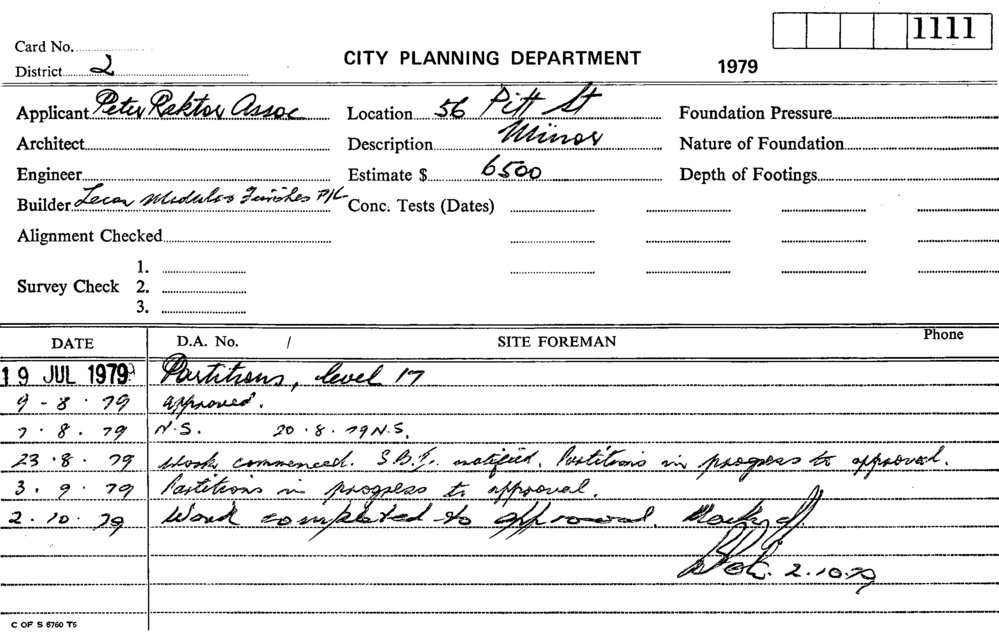 1111
Card No.
CITY PLANNING DEPARTMENT 1979
District 2
Applicant Peter Rektor Assoc Location 56 Pitt St Foundation Pressure
Architect Description Minor Nature of Foundation
Engineer Estimate $ 6500 Depth of Footings
Builder Finishes P/L Conc. Tests (Dates)
Alignment Checked
1.
Survey Check 2.
3.
DATE D.A. No. / SITE FOREMAN Phone
19 JUL 1979 Partitions, level 17
9-8.79 approved.
7.8.79 N.S. 20.8.79 N.S.
23.8.79 Work commenced. notified. Partitions in progress to approval.
3.9.79 Partitions in progress to approval.
2.10.79 Work completed to approval.
2.10.79
C OF S 6760 T6